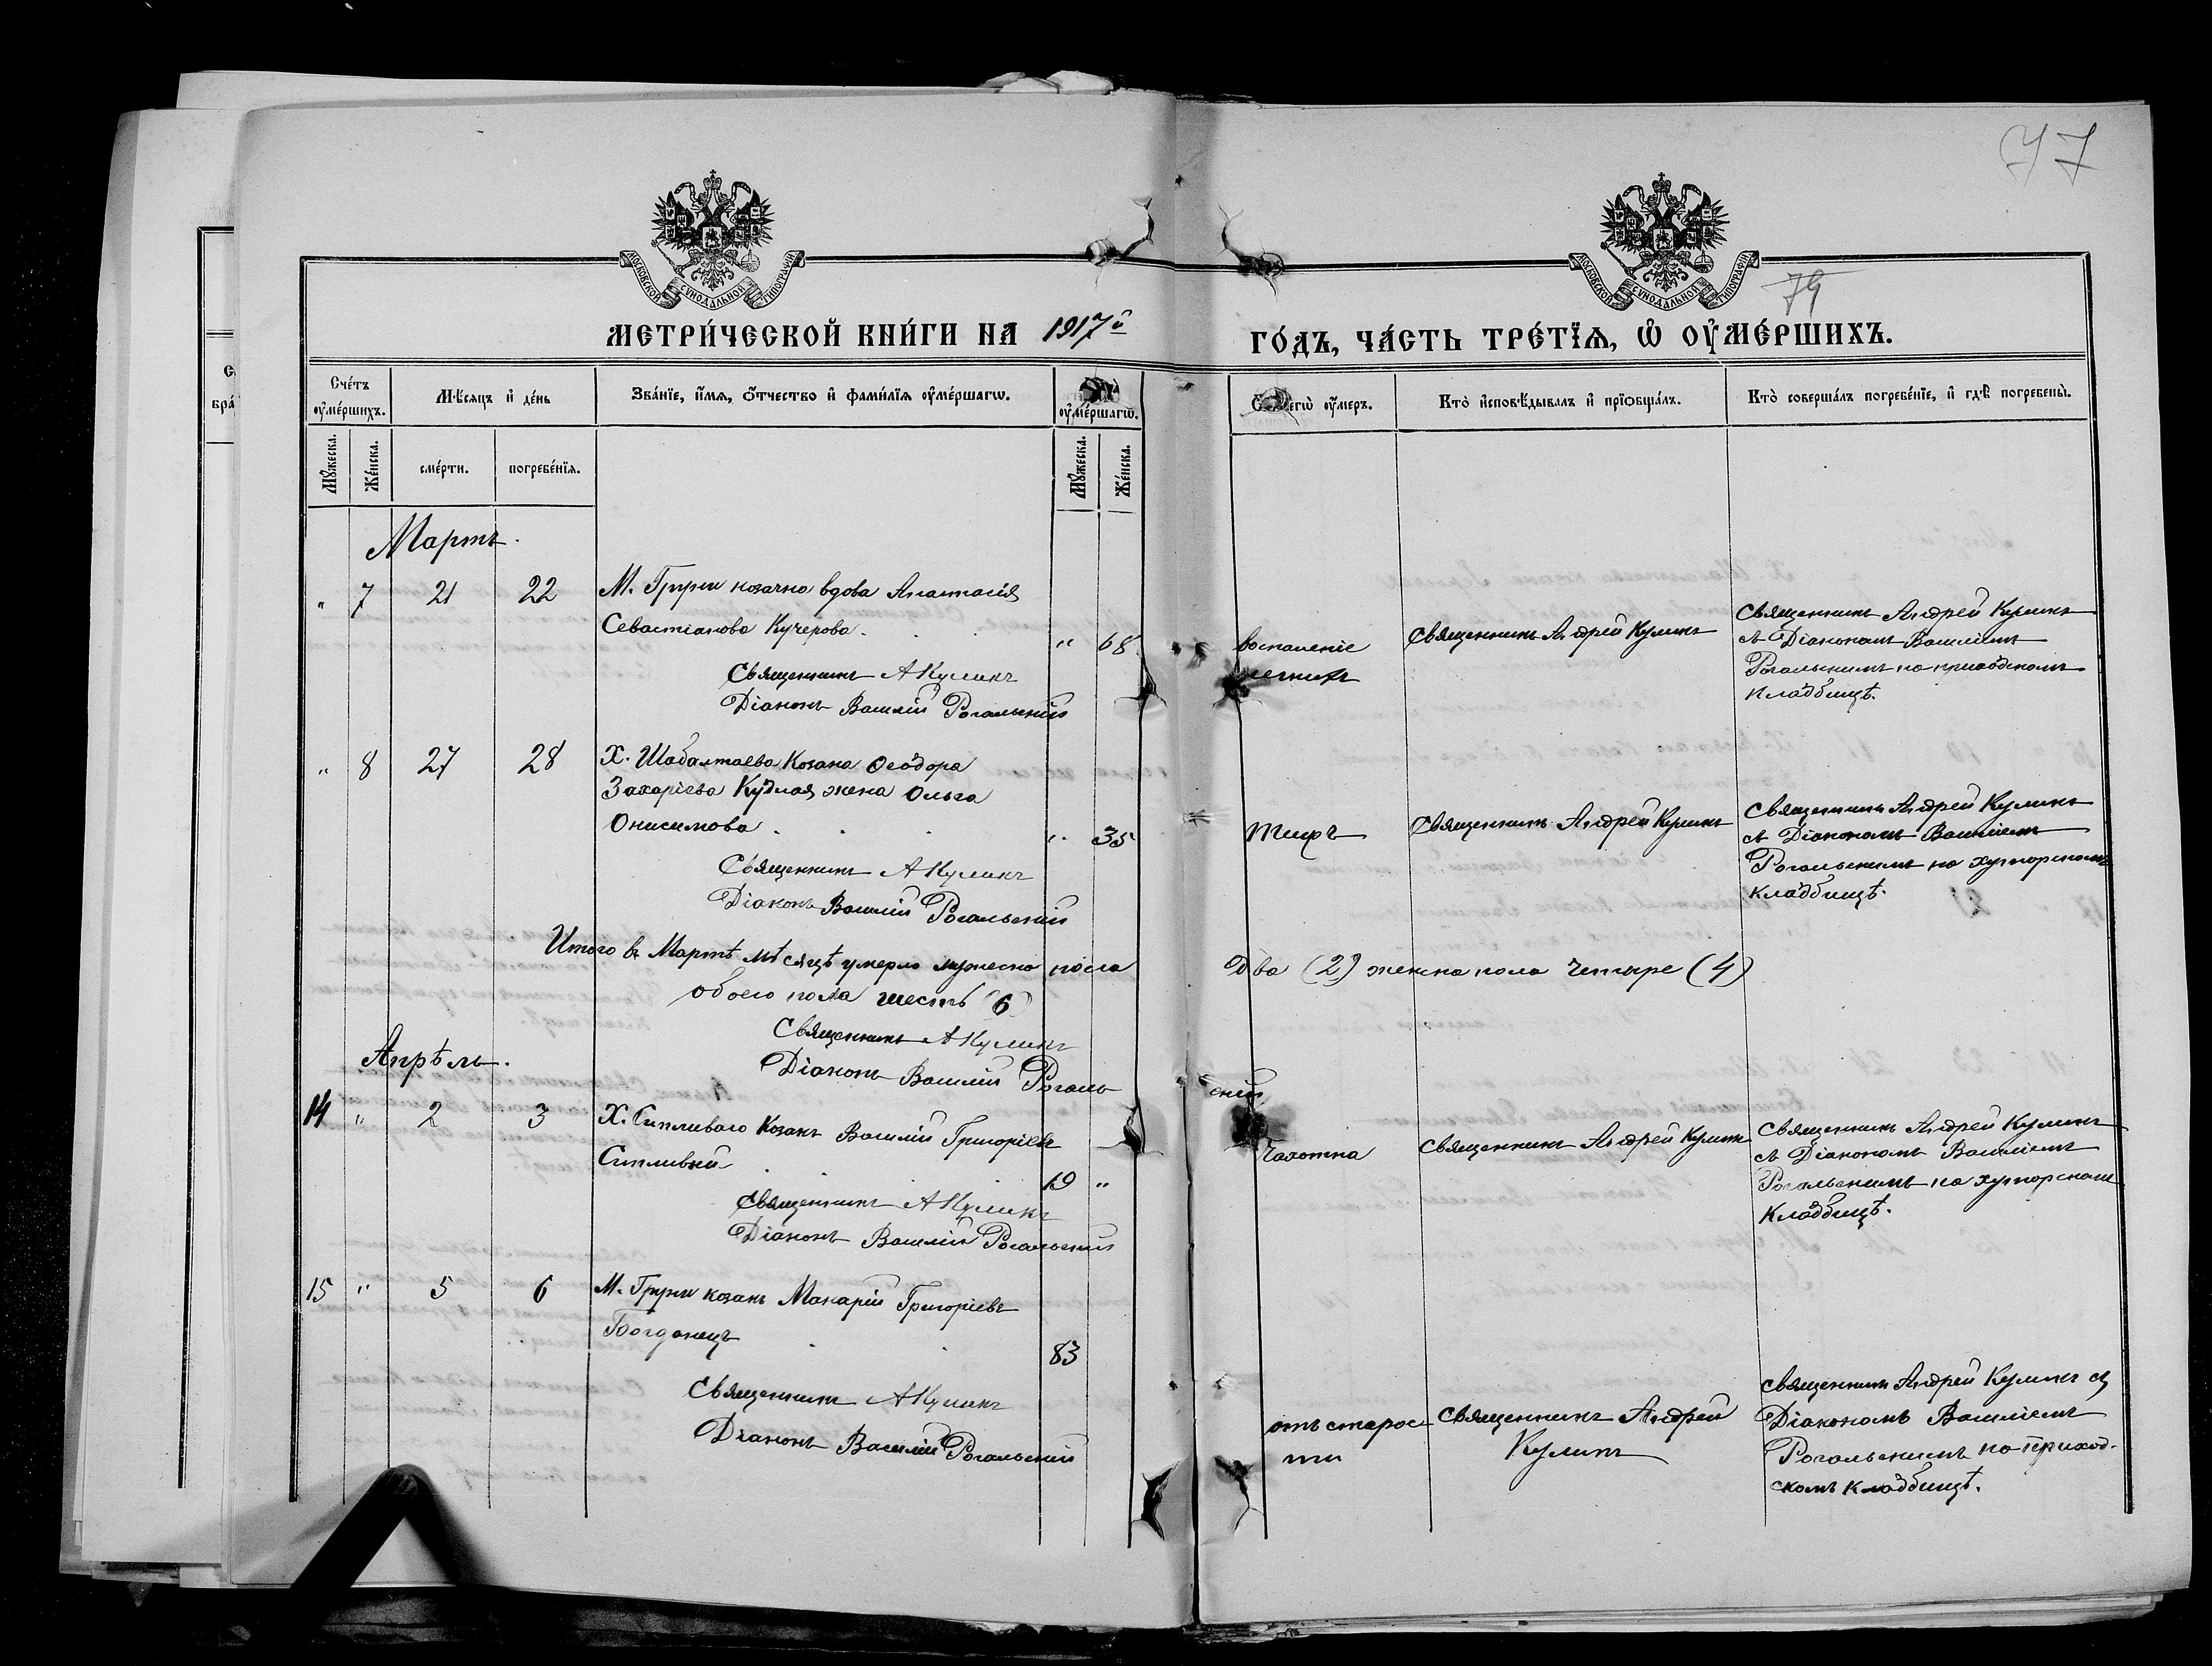 77
МОСКОВСКОЙ СѴНОДАЛЬНОЙ ТИПОГРАФІИ
МОСКОВСКОЙ СѴНОДАЛЬНОЙ ТИПОГРАФІИ
79
МЕТРИ́ЧЕСКОЙ КНИ́ГИ НА 1917й ГО́ДЪ, ЧА́СТЬ ТРЕ́ТЇѦ, Ѡ҆ ОУ҆МЕ́РШИХЪ.
Сче́тъ оу҆ме́ршихъ.
Мꙋ́жеска.
Же́нска.
Мѣ́сѧцъ и҆ де́нь
сме́рти.
погребе́нїѧ.
Зва́нїе, и҆́мѧ, ѻ҆́тчество и҆ фами́лїѧ оу҆ме́ршагѡ.
оу҆ме́ршагѡ.
Мꙋ́жеска.
Же́нска.
оу҆́меръ.
Кто̀ и҆сповѣ́дывалъ и҆ прїѡбща́лъ.
Кто̀ соверша́лъ погребе́нїе, и҆ гдѣ̀ погребены̀.
Мартъ.
" 7 21 22 М. Груни козачка вдова Анастасія
Севастіанова Кучерова. " 68
Священникъ АКуликъ
Діаконъ Василій Рогальскій
воспаленіе
легкихъ
Священникъ Андрей Куликъ
Священникъ Андрей Куликъ
съ Діакономъ Василіемъ
Рогальскимъ на приходскомъ
кладбищѣ.
" 8 27 28 Х. Шабалтаева Козака Ѳеодора
Захаріева Кудлая жена Ольга
Онисимова. " 35
Священникъ АКуликъ
Діаконъ Василій Рогальскій
Тифъ
Священникъ Андрей Куликъ
Священникъ Андрей Куликъ
съ Діакономъ Василіемъ
Рогальскимъ на хуторскомъ
кладбищѣ.
Итого въ Мартѣ мѣсяцѣ умерло мужеска пола Два (2) женска пола Четыре (4)
обоего пола шесть (6)
Священникъ АКуликъ
Діаконъ Василій Рогальскій
Апрѣль.
14 " 2 3 Х. Сипливаго Козакъ Василій Григоріевъ
Сипливый 19 "
Священникъ АКуликъ
Діаконъ Василій Рогальскій
Чахотка
Священникъ Андрей Куликъ
Священникъ Андрей Куликъ
съ Діакономъ Василіемъ
Рогальскимъ на хуторскомъ
Кладбищѣ.
15 " 5 6 М. Груни козакъ Макарій Григоріевъ
Богданецъ 83
Священникъ АКуликъ
Діаконъ Василій Рогальскій
отъ старос
ти
Священникъ Андрей
Куликъ
Священникъ Андрей Куликъ съ
Діакономъ Василіемъ
Рогальскимъ на приход-
скомъ кладбищѣ.